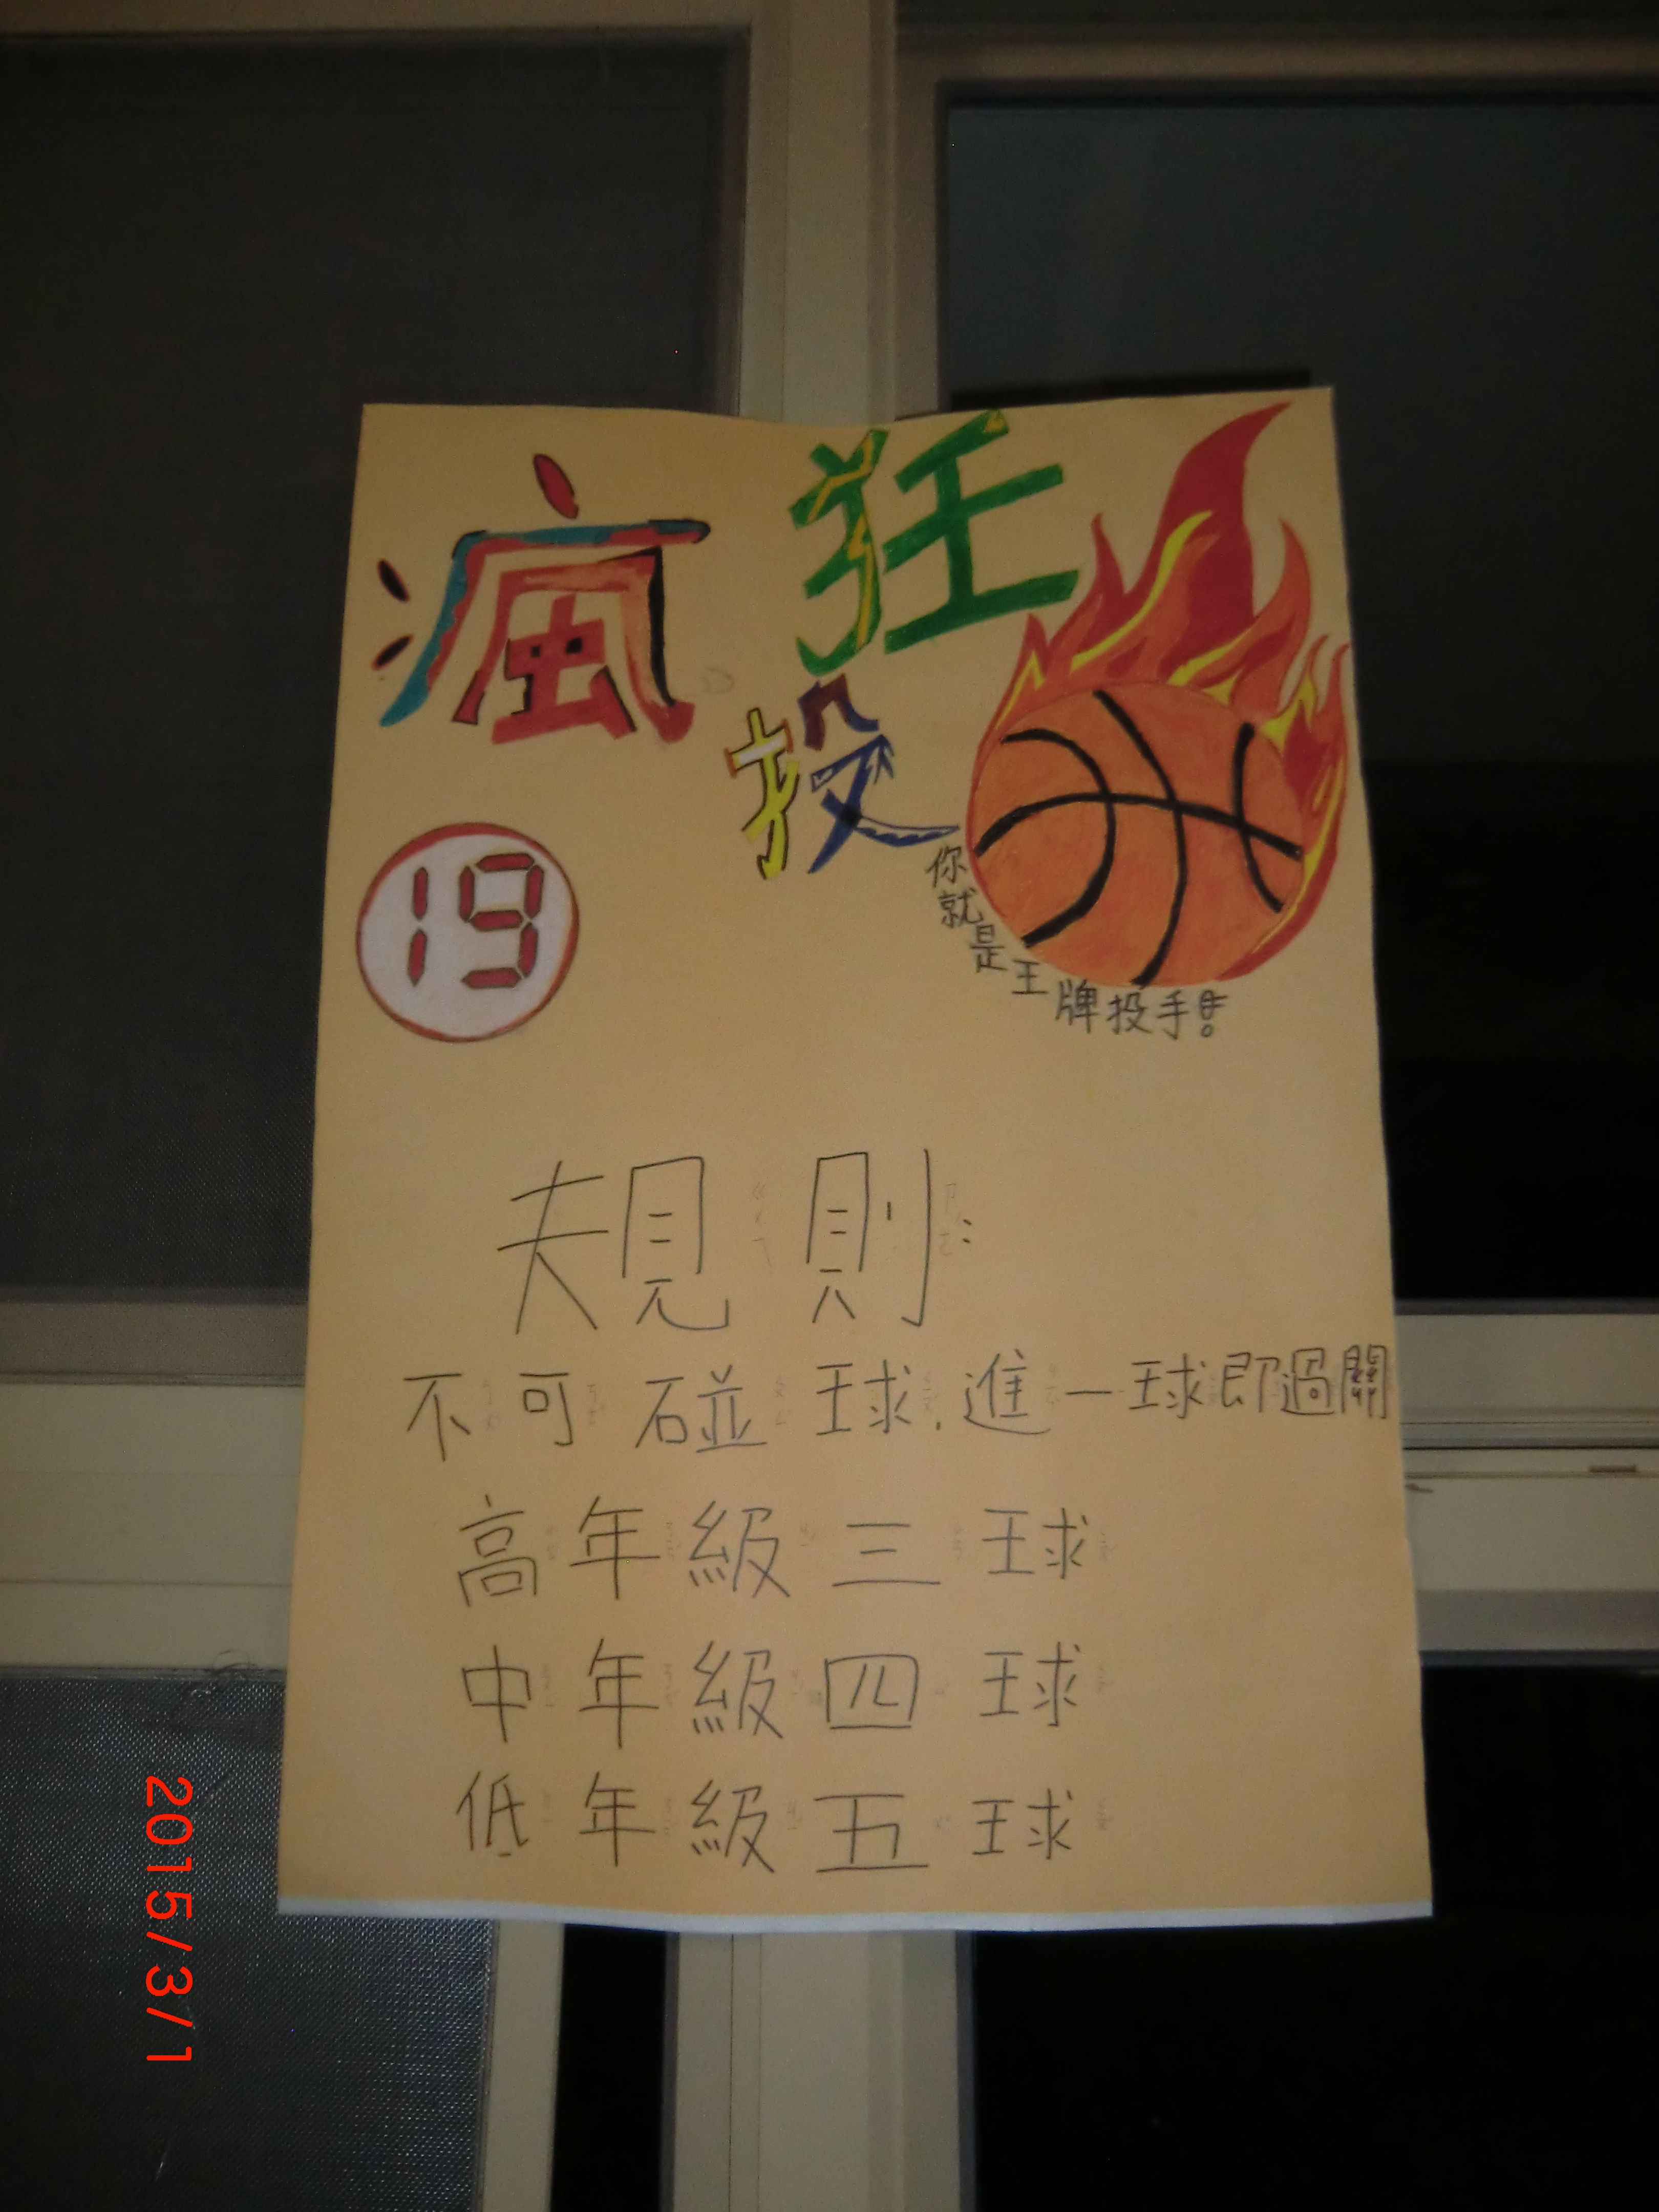 瘋狂
投
19
你就是王牌投手!!
規則:
不可碰球,進一球即過關
高年級三球
中年級四球
低年級五球
2015/3/1